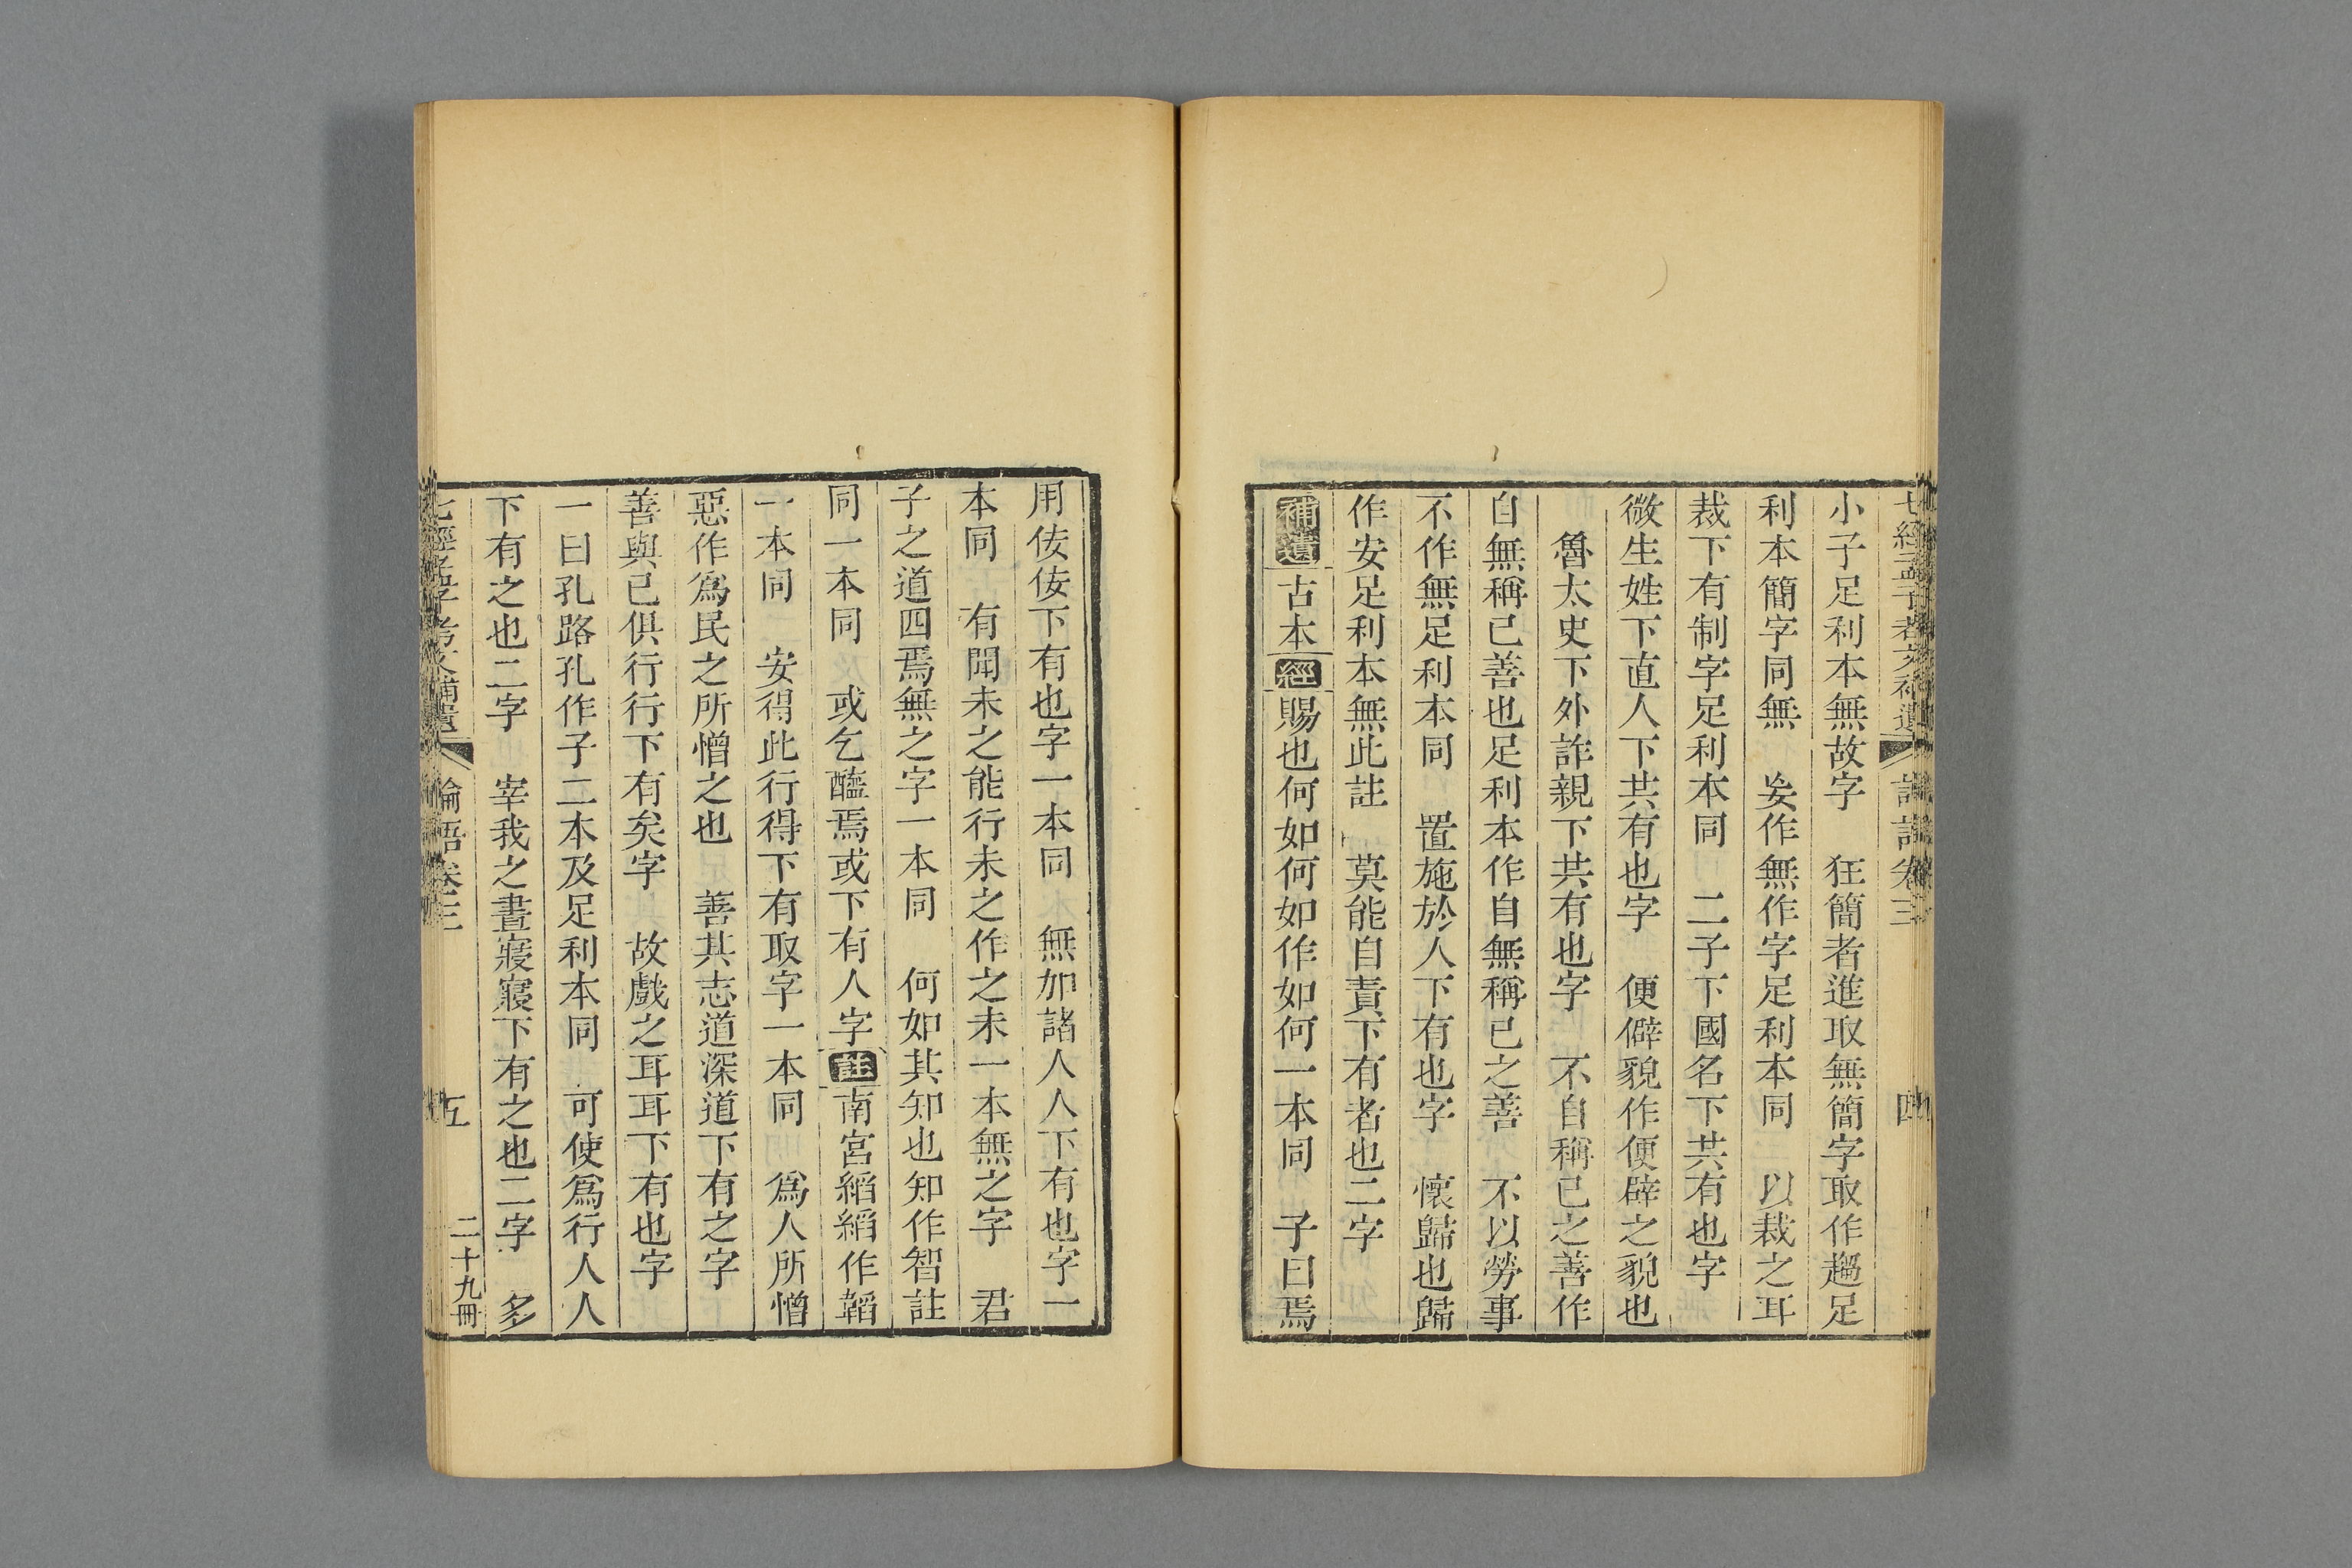 七經孟子考文補遺 論語卷三 四
小子足利本無故字 狂簡者進取無簡字取作趨足
利本簡字同無 妄作無作字足利本同 以裁之耳
裁下有制字足利本同 二子下國名下共有也字
微生姓下直人下共有也字 便僻貌作便辟之貌也
魯太史下外詐親下共有也字 不自稱己之善作
自無稱己善也足利本作自無稱己之善 不以勞事
不作無足利本同 置施於人下有也字 懷歸也歸
作安足利本無此註 莫能自責下有者也二字
補遺 古本 經 賜也何如何如作如何一本同 子曰焉
用佞佞下有也字一本同 無加諸人人下有也字一
本同 有聞未之能行未之作之未一本無之字 君
子之道四焉無之字一本同 何如其知也知作智註
同一本同 或乞醯焉或下有人字 註 南宮縚縚作韜
一本同 安得此行得下有取字一本同 爲人所憎
惡作爲民之所憎之也 善其志道深道下有之字
善與己俱行行下有矣字 故戲之耳耳下有也字
一曰孔路孔作子二本及足利本同 可使爲行人人
下有之也二字 宰我之晝寢寢下有之也二字 多
七經孟子考文補遺 論語卷三 五 二十九冊